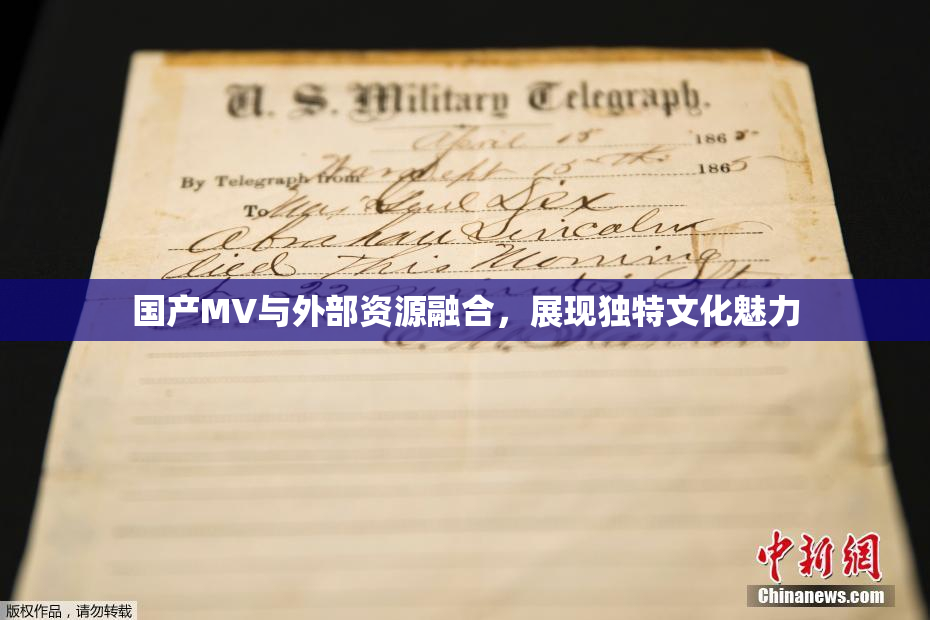 U. S. Military Telegraph.
April 15 1865
By Telegraph from War Dept 15th 1865
To Maj Genl Dix
Abraham Lincoln
died This Morning
at 22 minutes after
国产MV与外部资源融合，展现独特文化魅力
中新網
Chinanews.com
版权作品，请勿转载